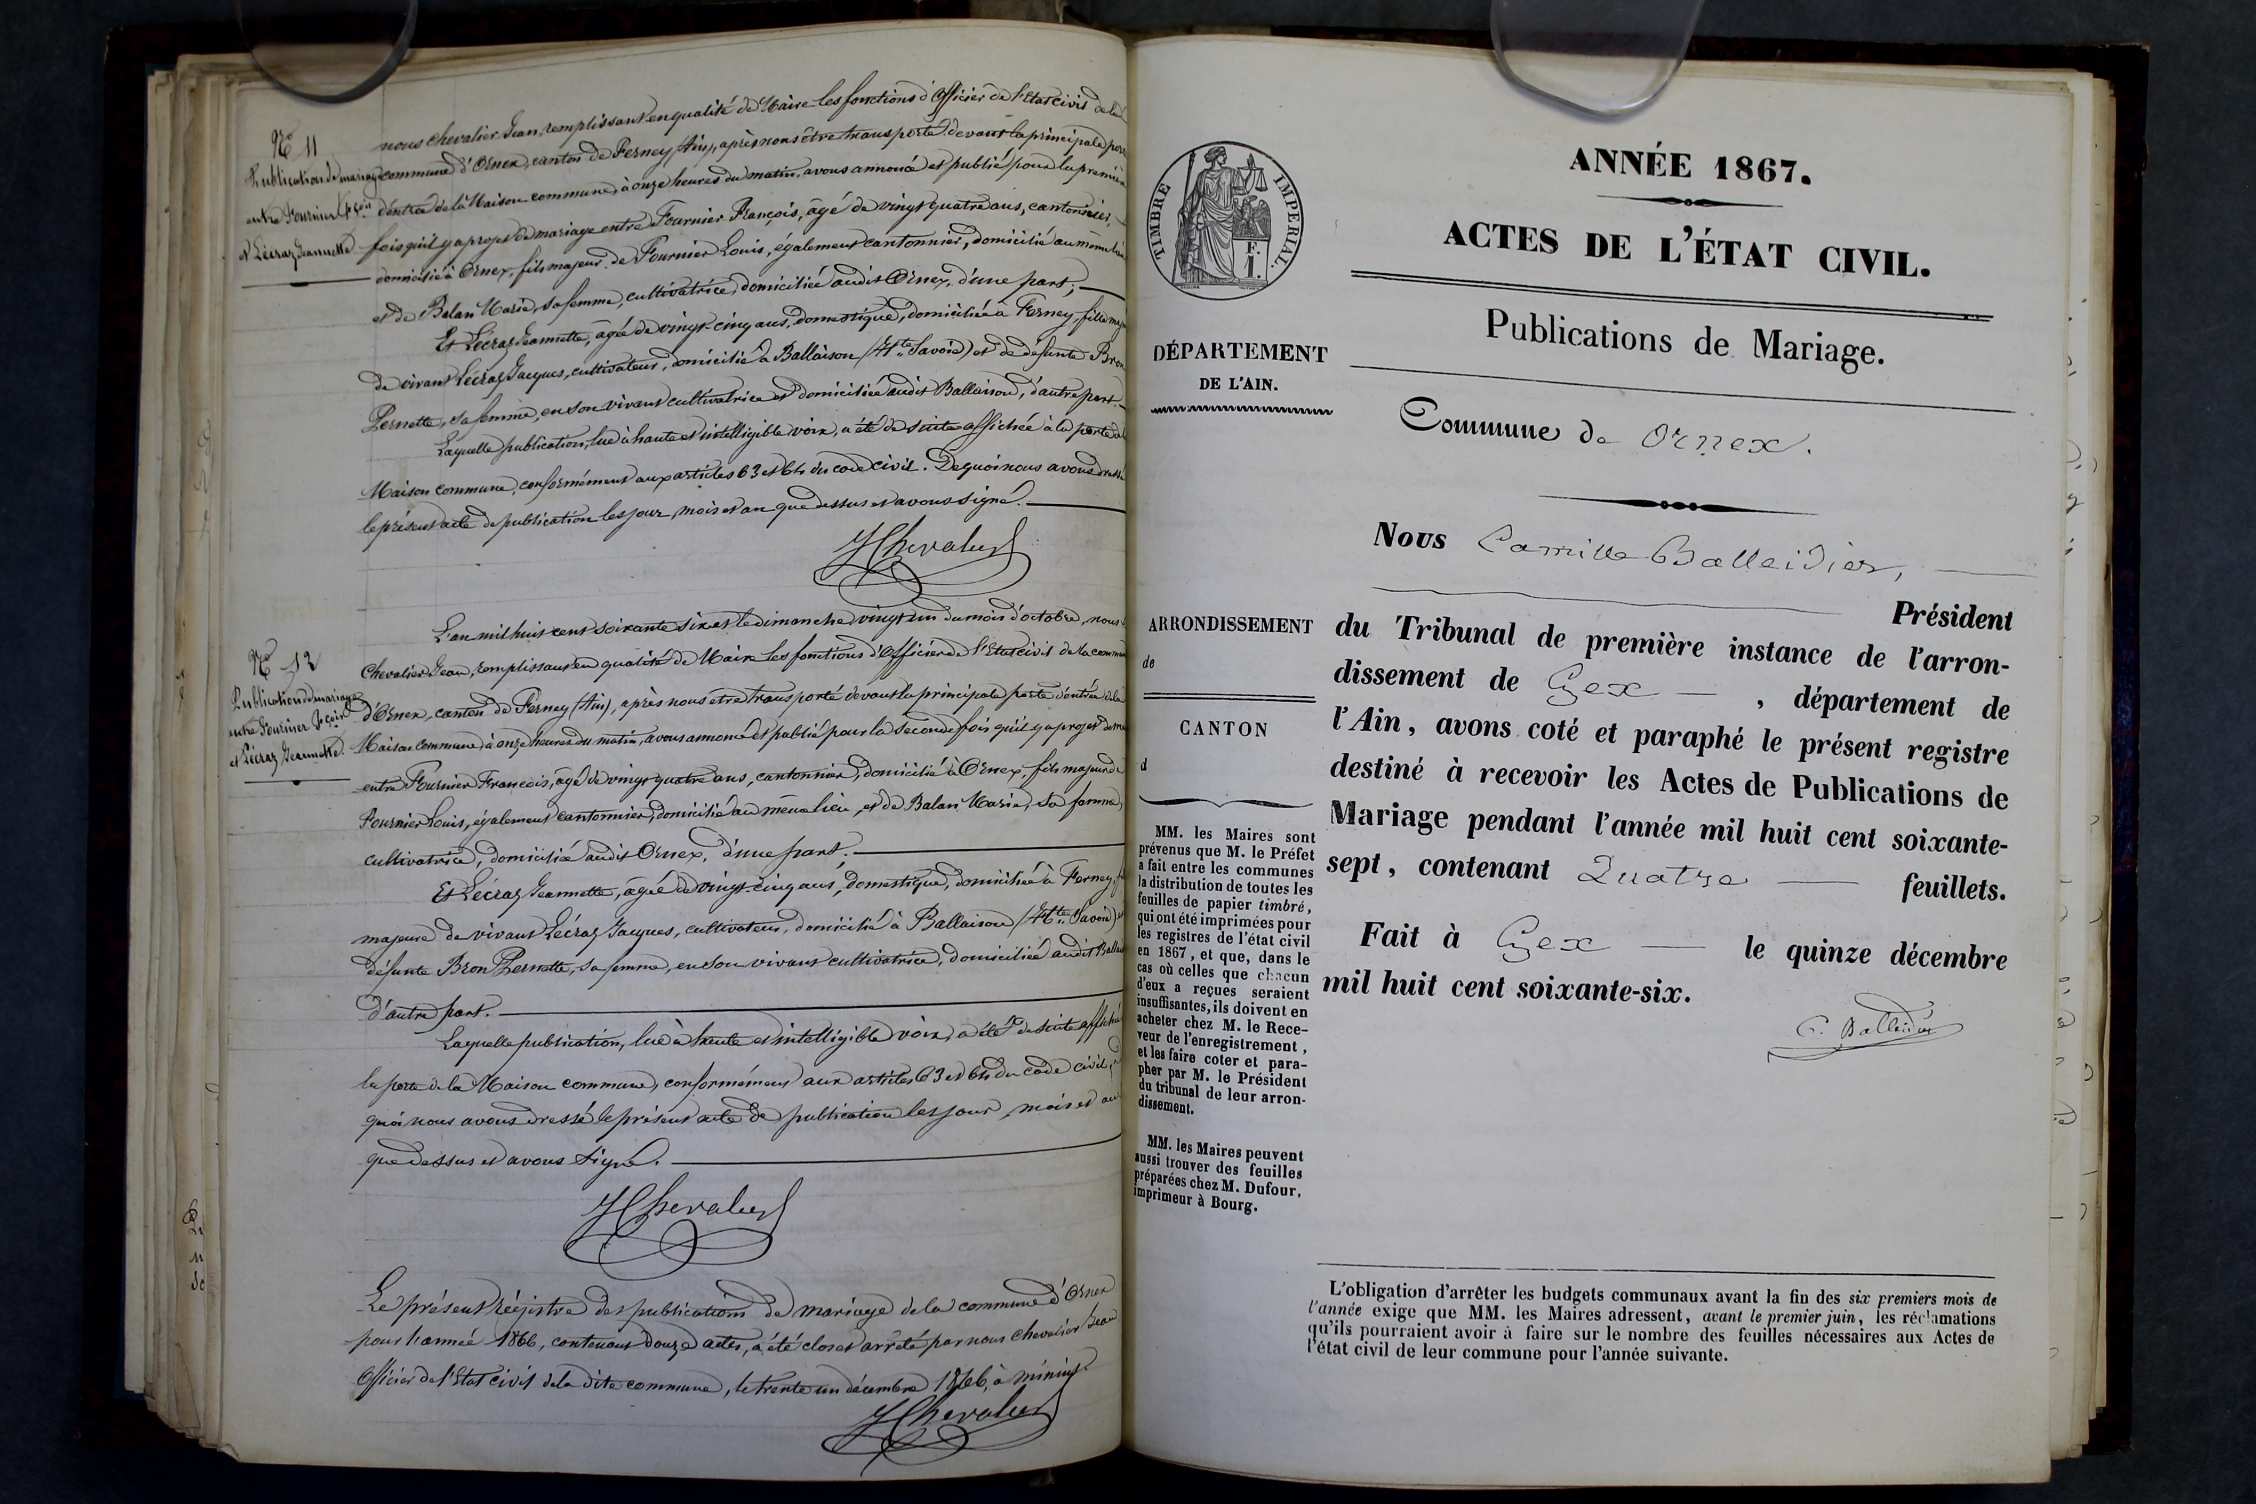 nous Chevalier Jean, remplissant en qualité de Maire les fonctions d'Officier de l'Etat civil de la
N° 11
Publication de mariage
entre Fournier fçois
et Lécraz Jeannette
commune d'Ornex, canton de Ferney (Ain), après nous être transporté devant la principale porte
d'entrée de la Maison commune, à onze heures du matin, avons annoncé et publié pour la première
fois qu'il y a projet de mariage entre Fournier François, âgé de vingt quatre ans, cantonnier,
domicilié à Ornex, fils majeur de Fournier Louis, également cantonnier, domicilié au même lieu
et de Balan Marie, sa femme, cultivatrice, domiciliée audit Ornex, d'une part;
Et Lécraz Jeannette, âgée de vingt-cinq ans, domestique, domiciliée à Ferney, fille maj
de vivant Lécraz Jacques, cultivateur, domicilié à Ballaison (Hte Savoie) et de défunte Bron
Pernette, sa femme, en son vivant cultivatrice et domiciliée audit Ballaison, d'autre part.
Laquelle publication, lue à haute et intelligible voix, a été de suite affichée à la porte de
Maison commune, conformément aux articles 63 et 64 du code civil. De quoi nous avons dressé
le présent acte de publication les jour, mois et an que dessus et avons signé.
J Chevalier
N° 12
Publication de mariage
entre Fournier fçois
et Lécraz Jeannette
L'an mil huit cent soixante six et le dimanche vingt un du mois d'octobre, nous
Chevalier Jean, remplissant en qualité de Maire les fonctions d'Officier de l'Etat civil de la commune
d'Ornex, canton de Ferney (Ain), après nous être transporté devant la principale porte d'entrée de la
Maison commune, à onze heures du matin, avons annoncé et publié pour la seconde fois qu'il y a projet de ma
entre Fournier François, âgé de vingt quatre ans, cantonnier, domicilié à Ornex, fils majeur de
Fournier Louis, également cantonnier, domicilié au même lieu, et de Balan Marie, sa femme,
cultivatrice, domiciliée audit Ornex, d'une part.
Et Lécraz Jeannette, âgée de vingt-cinq ans, domestique, domiciliée à Ferney, f
majeure de vivant Lécraz Jacques, cultivateur, domicilié à Ballaison (Hte Savoie) et
défunte Bron Pernette, sa femme, en son vivant cultivatrice, domiciliée audit Ballais
d'autre part.
Laquelle publication, lue à haute et intelligible voix, a été de suite affichée
la porte de la Maison commune, conformément aux articles 63 et 64 du code civil,
quoi nous avons dressé le présent acte de publication les jour, mois et an
que dessus et avons signé.
J Chevalier
Le présent régistre des publications de mariage de la commune d'Ornex
pour l'année 1866, contenant douze actes, a été clos et arrêté par nous Chevalier Jean
Officier de l'Etat civil de la dite commune, le trente un décembre 1866, à minuit
J Chevalier
TIMBRE IMPERIAL.
F.
1.
ANNÉE 1867.
ACTES DE L'ÉTAT CIVIL.
Publications de Mariage.
DÉPARTEMENT
DE L'AIN.
Commune de Ornex.
ARRONDISSEMENT
de
CANTON
d
Nous Camille Balleidier,
Président
du Tribunal de première instance de l'arron-
dissement de Gex, département de
l'Ain, avons coté et paraphé le présent registre
destiné à recevoir les Actes de Publications de
Mariage pendant l'année mil huit cent soixante-
sept, contenant Quatre feuillets.
Fait à Gex le quinze décembre
mil huit cent soixante-six.
C. Balleidier
MM. les Maires sont
prévenus que M. le Préfet
a fait entre les communes
la distribution de toutes les
feuilles de papier timbré,
qui ont été imprimées pour
les registres de l'état civil
en 1867, et que, dans le
cas où celles que chacun
d'eux a reçues seraient
insuffisantes, ils doivent en
acheter chez M. le Rece-
veur de l'enregistrement,
et les faire coter et para-
pher par M. le Président
du tribunal de leur arron-
dissement.
MM. les Maires peuvent
aussi trouver des feuilles
préparées chez M. Dufour,
imprimeur à Bourg.
L'obligation d'arrêter les budgets communaux avant la fin des six premiers mois de
l'année exige que MM. les Maires adressent, avant le premier juin, les réclamations
qu'ils pourraient avoir à faire sur le nombre des feuilles nécessaires aux Actes de
l'état civil de leur commune pour l'année suivante.